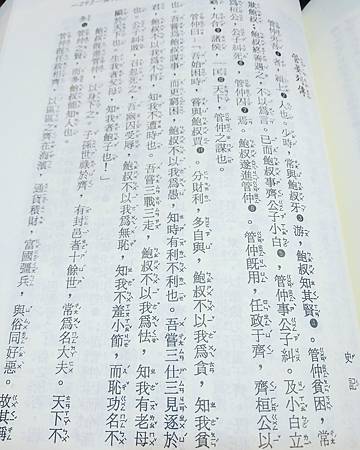 史記
管晏列傳
管仲夷吾者,潁上人也。少時,常與鮑叔牙游,鮑叔知其賢。管仲貧困,常
欺鮑叔,鮑叔終善遇之,不以為言。已而鮑叔事齊公子小白,管仲事公子糾。及小白立
為桓公,公子糾死,管仲囚焉。鮑叔遂進管仲。管仲既用,任政于齊,齊桓公以
霸,九合諸侯,一匡天下,管仲之謀也。
管仲曰:「吾始困時,嘗與鮑叔賈,分財利多自與,鮑叔不以我為貪,知我貧
也。吾嘗為鮑叔謀事,而更窮困,鮑叔不以我為愚,知時有利不利也。吾嘗三仕三見逐於
君,鮑叔不以我為不肖,知我不遭時也。吾嘗三戰三走,鮑叔不以我為怯,知我有老母
也。公子糾敗,召忽死之,吾幽囚受辱,鮑叔不以我為無恥,知我不羞小節,而恥功名不
顯於天下也。生我者父母,知我者鮑子也!」
鮑叔既進管仲,以身下之。子孫世祿於齊,有封邑者十餘世,常為名大夫。天下不
多管仲之賢,而多鮑叔能知人也。
管仲既任政相齊,以區區之齊在海濱,通貨積財,富國彊兵,與俗同好惡。故其稱